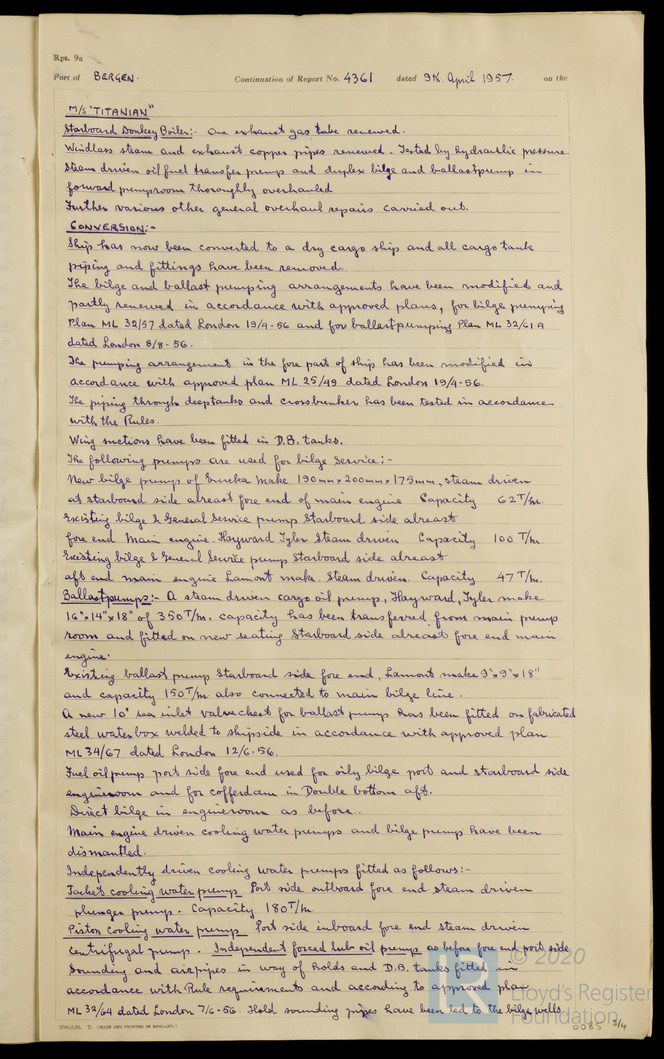 Rps. 9a
Port of BERGEN. Continuation of Report No. 4361 dated 9th. April 1957. on the
M/S "TITANIAN"
Starboard Donkey Boiler:- One exhaust gas tube renewed.
Windlass steam and exhaust copper pipes renewed. Tested by hydraulic pressure.
Steam driven oil fuel transfer pump and duplex bilge and ballastpump in
forward pumproom thoroughly overhauled
Further various other general overhaul repairs carried out.
CONVERSION:-
Ship has now been converted to a dry cargo ship and all cargo tank
piping and fittings have been removed.
The bilge and ballast pumping arrangements have been modified and
partly renewed in accordance with approved plans, for bilge pumping
Plan ML 32/57 dated London 19/4-56 and for ballastpumping Plan ML 32/61A
dated London 8/8-56.
The pumping arrangement in the fore part of ship has been modified in
accordance with approved plan ML 25/49 dated London 19/4-56.
The piping through deeptanks and crossbunker has been tested in accordance
with the Rules.
Wing suctions have been fitted in D.B. tanks.
The following pumps are used for bilge service:-
New bilge pump of Eureka make 190mm x 200mm x 175mm, steam driven
at starboard side abreast fore end of main engine Capacity 62 T/m.
Existing bilge & General Service pump Starboard side abreast
fore end Main engine. Hayward Tyler Steam driven Capacity 100 T/m.
Existing bilge & General Service pump Starboard side abreast
aft end main engine Lamont make. Steam driven. Capacity 47 T/m.
Ballastpumps:- A steam driven cargo oil pump, Hayward, Tyler make
16"x14"x18" of 350 T/m. capacity has been transferred from main pump
room and fitted on new seating Starboard side abreast fore end main
engine.
Existing ballast pump Starboard side fore end, Lamont make 9"x9"x18"
and capacity 150 T/m also connected to main bilge line.
A new 10" sea inlet valvechest for ballast pump has been fitted on fabricated
steel waterbox welded to shipside in accordance with approved plan
ML 34/67 dated London 12/6-56.
Fuel oil pump port side fore end used for oily bilge port and starboard side
engineroom and for cofferdam in Double bottom aft.
Direct bilge in engineroom as before.
Main engine driven cooling water pumps and bilge pump have been
dismantled.
Independently driven cooling water pumps fitted as follows:-
Jacket cooling water pump Port side outboard fore end steam driven
plunger pump. Capacity 180 T/m
Piston cooling water pump Port side inboard fore end steam driven
centrifugal pump. Independent forced lub. oil pump as before fore end port side
Sounding and airpipes in way of holds and D.B. tanks fitted in
accordance with Rule requirements and according to approved plan
ML 32/64 dated London 7/6-56. Hold sounding pipes have been led to the bilge wells
T. (MADE AND PRINTED IN ENGLAND.)
© 2020
LR
Lloyd's Register
Foundation
0085 3/4